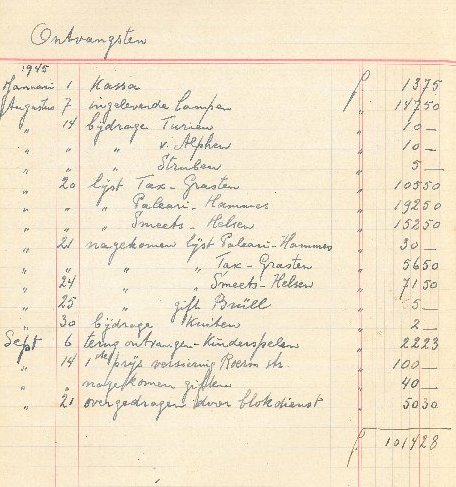 Ontvangsten
1945
Januari 1 Kassa f 13 75
Augustus 7 ingeleverde lampen „ 147 50
„ 14 bijdrage Turien „ 10 —
„ „ „ v. Alphen „ 10 —
„ „ „ Struben „ 5 —
„ 20 lijst Tax - Grasten „ 105 50
„ „ „ Paleari - Hammes „ 192 50
„ „ „ Smeets - Helsen „ 152 50
„ 21 nagekomen lijst Paleari - Hammes „ 30 —
„ „ „ „ Tax - Grasten „ 56 50
„ 24 „ „ Smeets - Helsen „ 71 50
„ 25 „ gift Brüll „ 5 —
„ 30 bijdrage Kuiten „ 2 —
Sept 6 terug ontvangen Kinderspelen „ 22 23
„ 14 1de prijs versiering Roerm str. „ 100 —
„ „ nagekomen giften „ 40 —
„ 21 overgedragen door blokdienst „ 50 30
f 1014 28